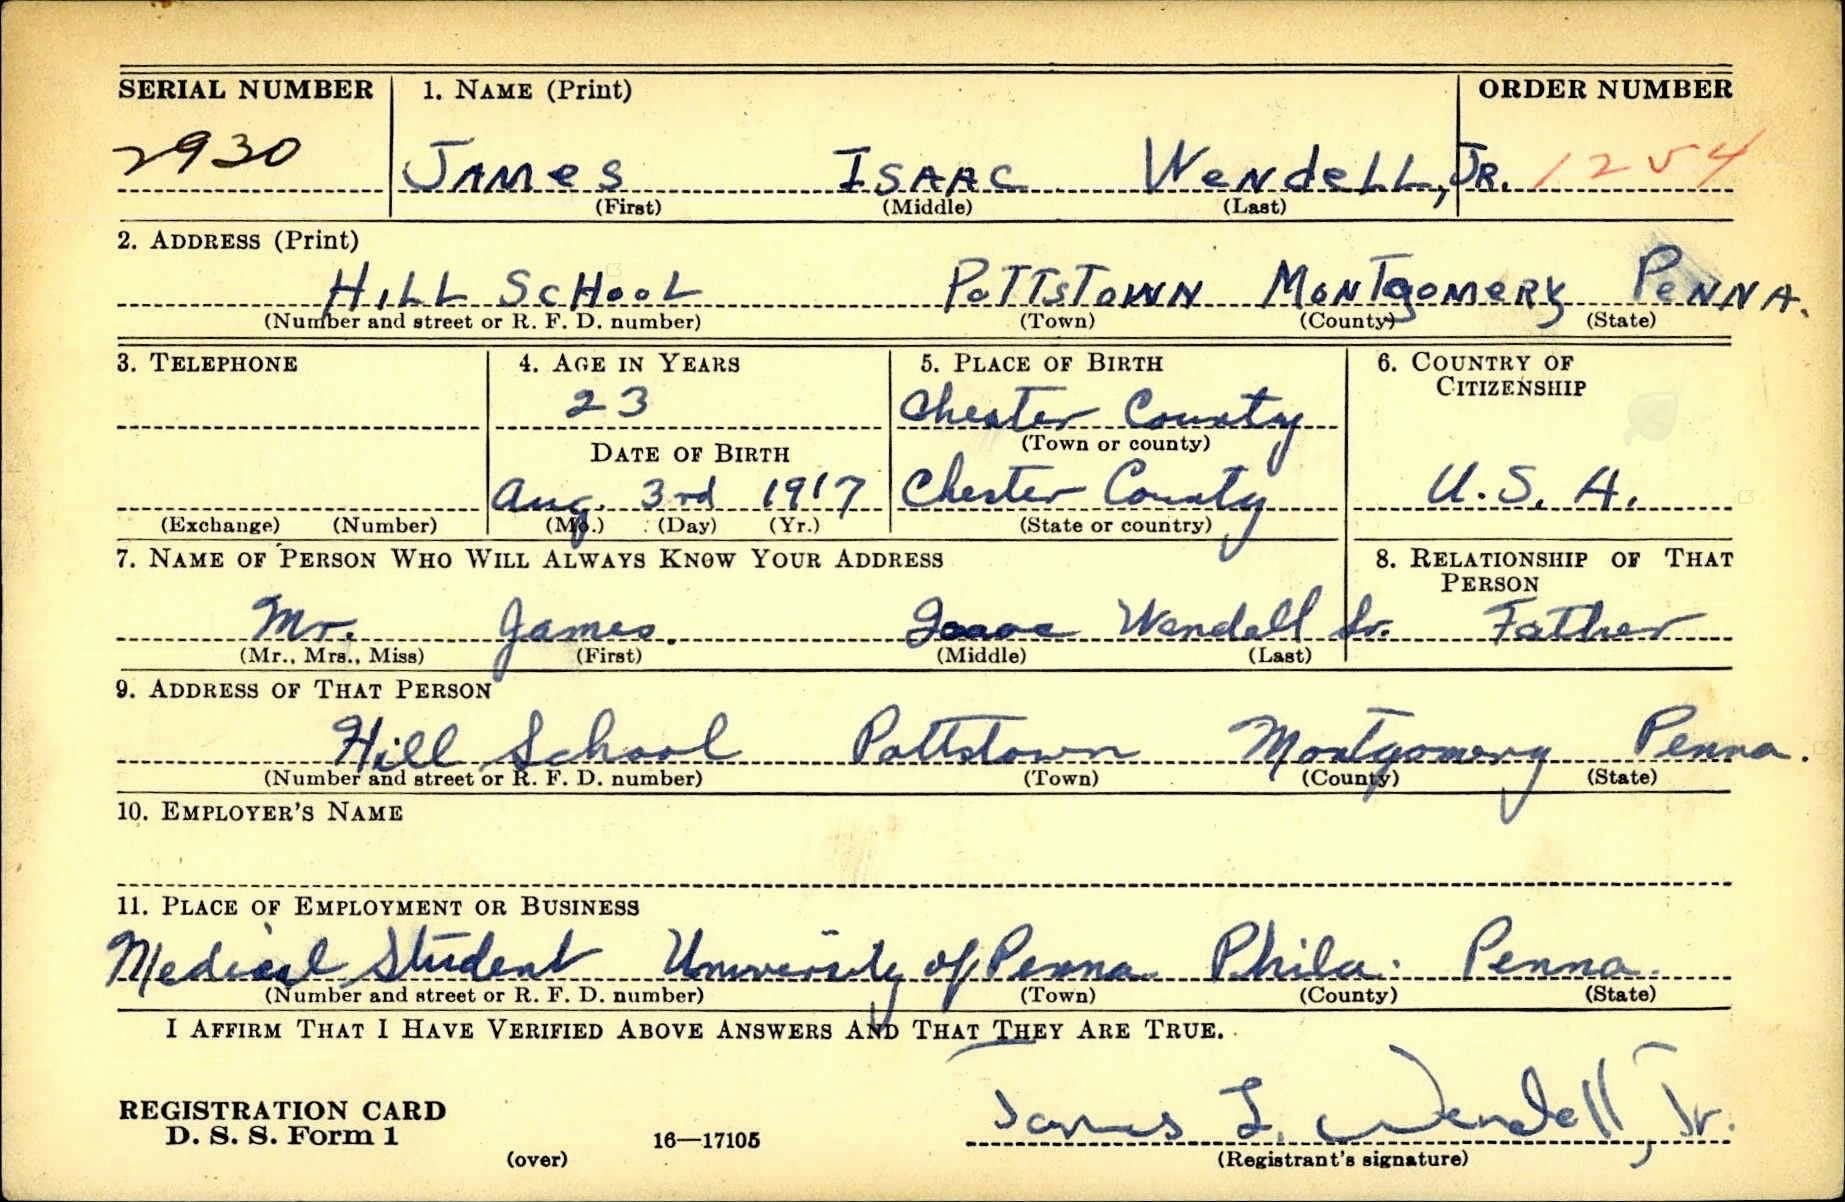 SERIAL NUMBER 1. NAME (Print) ORDER NUMBER
2930 JAMES ISAAC WENDELL, JR. 1254
(First) (Middle) (Last)
2. ADDRESS (Print)
HILL SCHOOL POTTSTOWN MONTGOMERY PENNA.
(Number and street or R. F. D. number) (Town) (County) (State)
3. TELEPHONE 4. AGE IN YEARS 5. PLACE OF BIRTH 6. COUNTRY OF CITIZENSHIP
23 Chester County
DATE OF BIRTH (Town or county)
Aug. 3rd 1917 Chester County U.S.A.
(Exchange) (Number) (Mo.) (Day) (Yr.) (State or country)
7. NAME OF PERSON WHO WILL ALWAYS KNOW YOUR ADDRESS 8. RELATIONSHIP OF THAT PERSON
Mr. James Isaac Wendell Sr. Father
(Mr., Mrs., Miss) (First) (Middle) (Last)
9. ADDRESS OF THAT PERSON
Hill School Pottstown Montgomery Penna.
(Number and street or R. F. D. number) (Town) (County) (State)
10. EMPLOYER'S NAME
11. PLACE OF EMPLOYMENT OR BUSINESS
Medical Student University of Penna Phila. Penna.
(Number and street or R. F. D. number) (Town) (County) (State)
I AFFIRM THAT I HAVE VERIFIED ABOVE ANSWERS AND THAT THEY ARE TRUE.
REGISTRATION CARD James I. Wendell, Jr.
D. S. S. Form 1 16—17105
(over) (Registrant's signature)